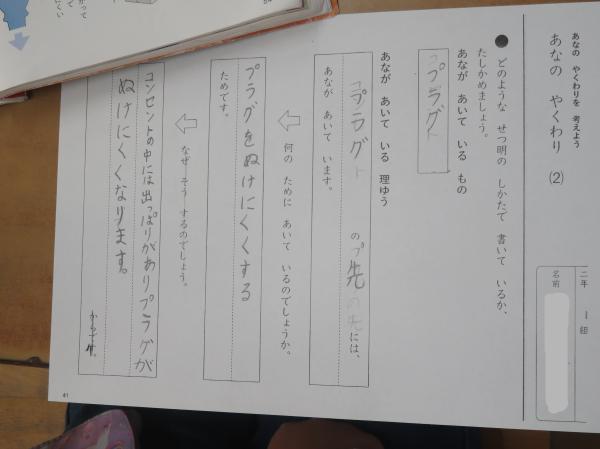 あなの やくわりを 考えよう
あなの やくわり (2)
二年 1 組
名前
● どのような せつ明の しかたで 書いて いるか、
たしかめましょう。
あなが あいて いる もの
プラグ
あなが あいて いる 理ゆう
プラグ の 先 には、
あなが あいて います。
何の ために あいて いるのでしょうか。
プラグをぬけにくくする
ためです。
なぜ そう するのでしょう。
コンセントの中には出っぱりがありプラグが
ぬけにくくなります。
からです。
41